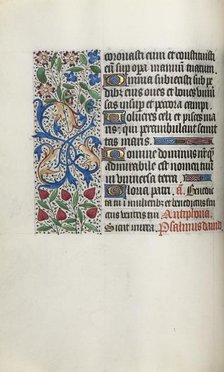 coronasti eum et constituisti
eum super opera manuum tuarum.
Omnia subiecisti sub pe
dibus eius oues et boues vniuer
sas insuper et pecora campi.
Volucres celi et pisces ma
ris: qui perambulant semitas
maris.
Domine dominus noster quam
admirabile est nomen tuum
in vniuersa terra.
Gloria patri. a. Benedic
ta tu in mulieribus et benedictus fruc
tus ventris tui. Antiphona.
Sicut mirra. Psalmus dauid.